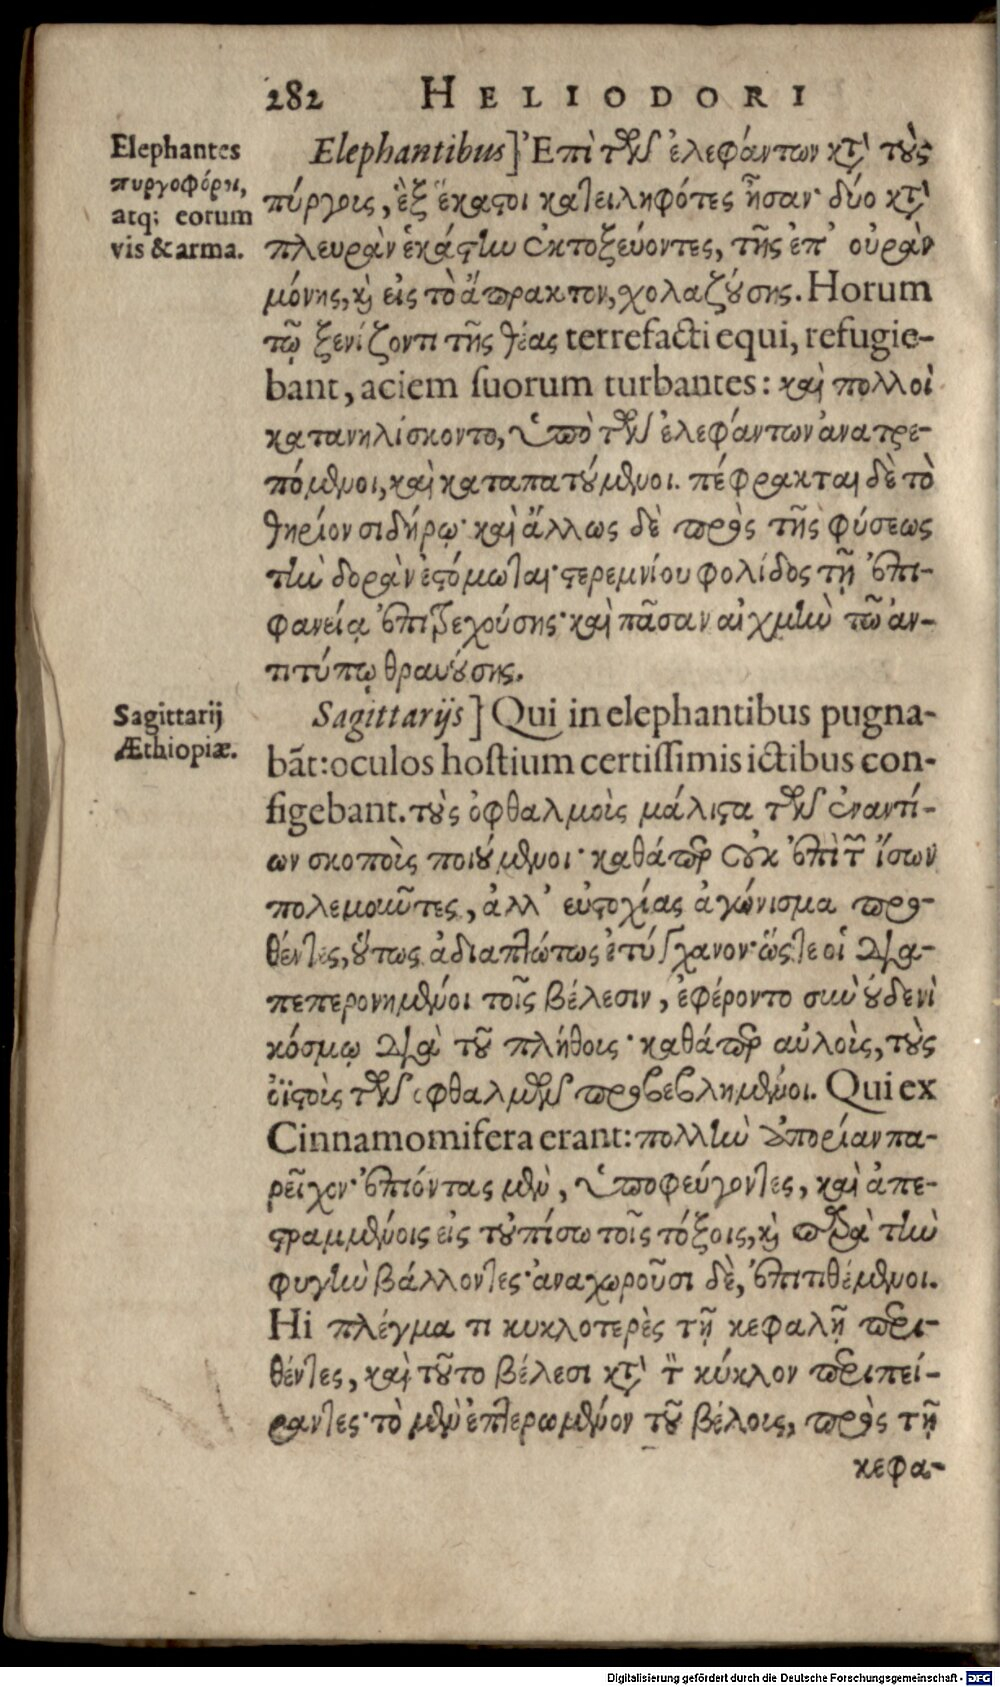 282 HELIODORI
Elephantes
πυργοφόροι,
atq; eorum
vis & arma.
Elephantibus] Ἐπὶ τῶν ἐλεφάντων κτ' τοὺς
πύργοις, ἓξ ἕκαστοι κατειληφότες ἦσαν· δύο κτ'
πλευρὰν ἑκάστην ἐκτοξεύοντες, τῆς ἐπ' οὐρὰν
μόνης, κὶ εἰς τὸ ἄπρακτον, χολαζούσης. Horum
τῷ ξενίζοντι τῆς θέας terrefacti equi, refugie-
bant, aciem suorum turbantes: καὶ πολλοὶ
κατανηλίσκοντο, ὑπὸ τῶν ἐλεφάντων ἀνατρε-
πόμενοι, καὶ καταπατούμενοι. πέφρακται δὲ τὸ
θηρίον σιδήρῳ· καὶ ἄλλως δὲ πρὸς τῆς φύσεως
τὴν δορὰν ἐστόμωται· στερεμνίου φολίδος τῇ ἐπι-
φανείᾳ ἐπιτρεχούσης· καὶ πᾶσαν αἰχμὴν τῷ ἀν-
τιτύπῳ θραυούσης.
Sagittarij
Æthiopiæ.
Sagittarijs] Qui in elephantibus pugna-
bāt: oculos hostium certissimis ictibus con-
figebant. τοὺς ὀφθαλμοὶς μάλιστα τῶν ἐναντί-
ων σκοποὶς ποιούμενοι· καθάπερ οὐκ ἐπὶ τ̃ ἴσων
πολεμοῦντες, ἀλλ' εὐστοχίας ἀγώνισμα προ-
θέντες, οὕτως ἀδιαπτώτως ἐτύγχανον· ὥστε οἱ δια-
πεπερονημένοι τοῖς βέλεσιν, ἐφέροντο σὺν οὐδενὶ
κόσμῳ διὰ τοῦ πλήθοις· καθάπερ αὐλοὶς, τοὺς
ὀϊστοὶς τῶν ὀφθαλμῶν προβεβλημένοι. Qui ex
Cinnamomifera erant: πολλὴν ἀπορίαν πα-
ρεῖχον· ἐπιόντας μὲν, ὑποφεύγοντες, καὶ ἀπε-
στραμμένοις εἰς τοὐπίσω τοῖς τόξοις, κὶ παρὰ τὴν
φυγὴν βάλλοντες· ἀναχωροῦσι δὲ, ἐπιτιθέμενοι.
Hi πλέγμα τι κυκλοτερὲς τῇ κεφαλῇ περι-
θέντες, καὶ τοῦτο βέλεσι κτ' τ̀ κύκλον περιπεί-
ραντες· τὸ μὲν ἐπτερωμένον τοῦ βέλοις, πρὸς τῇ
κεφα-
Digitalisierung gefördert durch die Deutsche Forschungsgemeinschaft - DFG